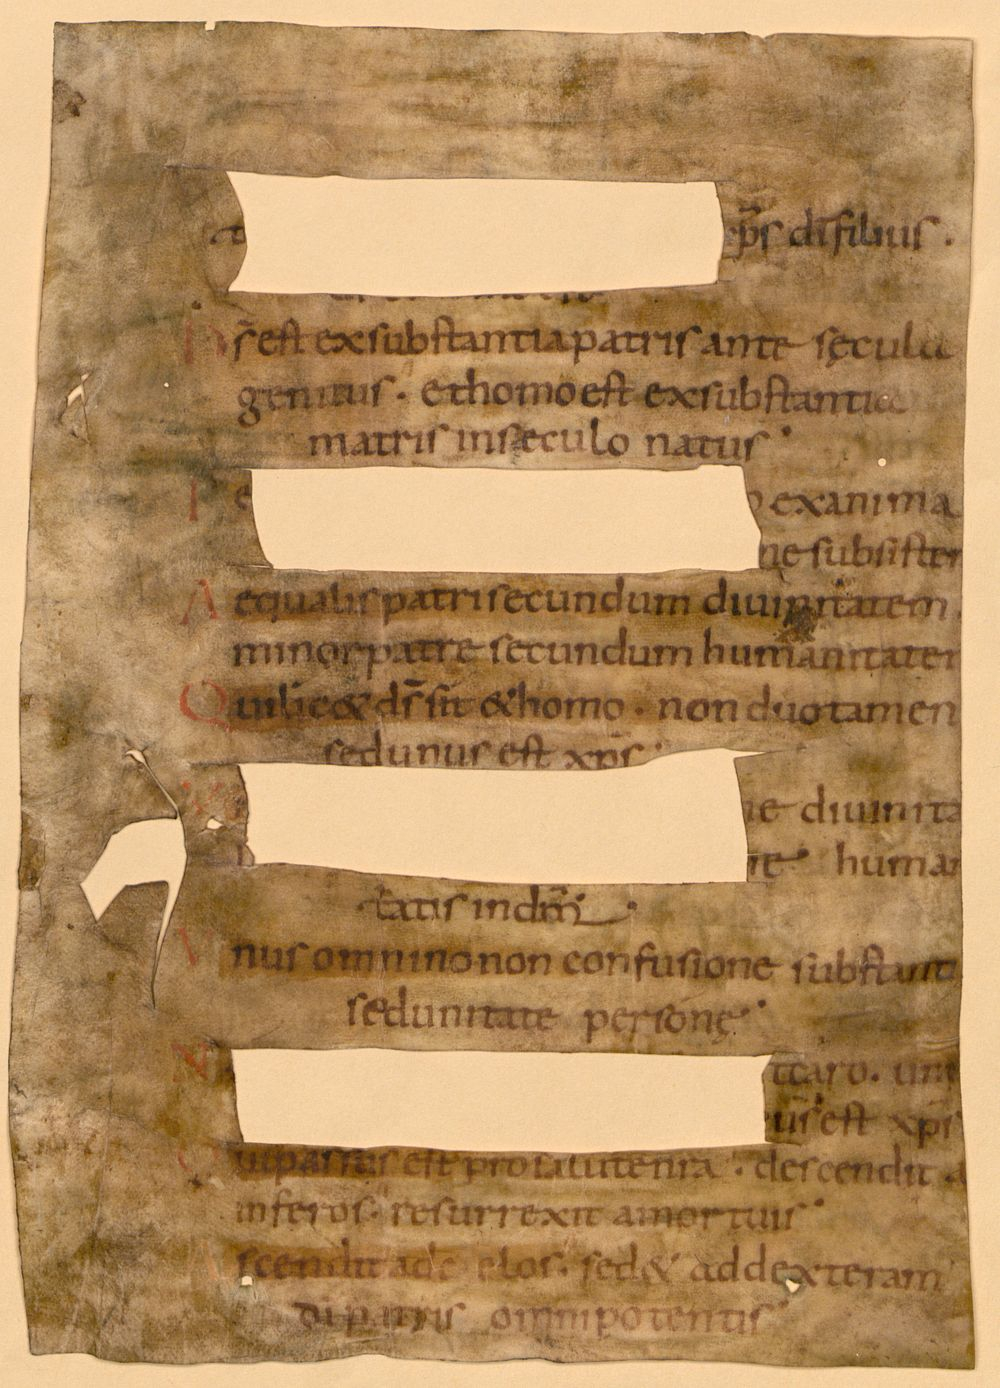 xp̄s dī filius .
D s̄ est ex substantia patris ante sęcula
genitus . et homo est ex substantia
matris in sæculo natus
P e exanima
ne subsisten
A equalis patri secundum diuinitatem .
minor patre secundum humanitatem
Q ui licet & ds̄ sit & homo . non duo tamen
sed unus est xp̄s
ne diuinita
ne humani
tatis in dm̄
V nus omnino non confusione substanti
sed unitate personę
N t caro . un
us est xp̄s
Q ui passus est pro salute n̄ra . descendit a
inferos . resurrexit a mortuis
A scendit ad cęlos . sed& ad dexteram
dī patris omnipotentis